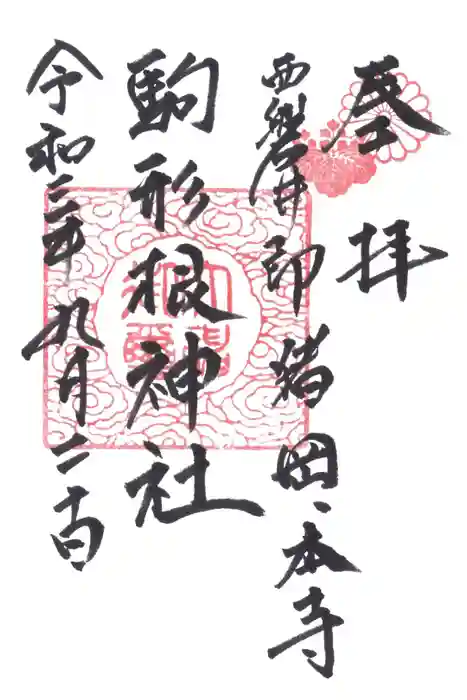 奉拝
西磐井郡猪岡、本寺
駒形根神社
令和二年九月二十日